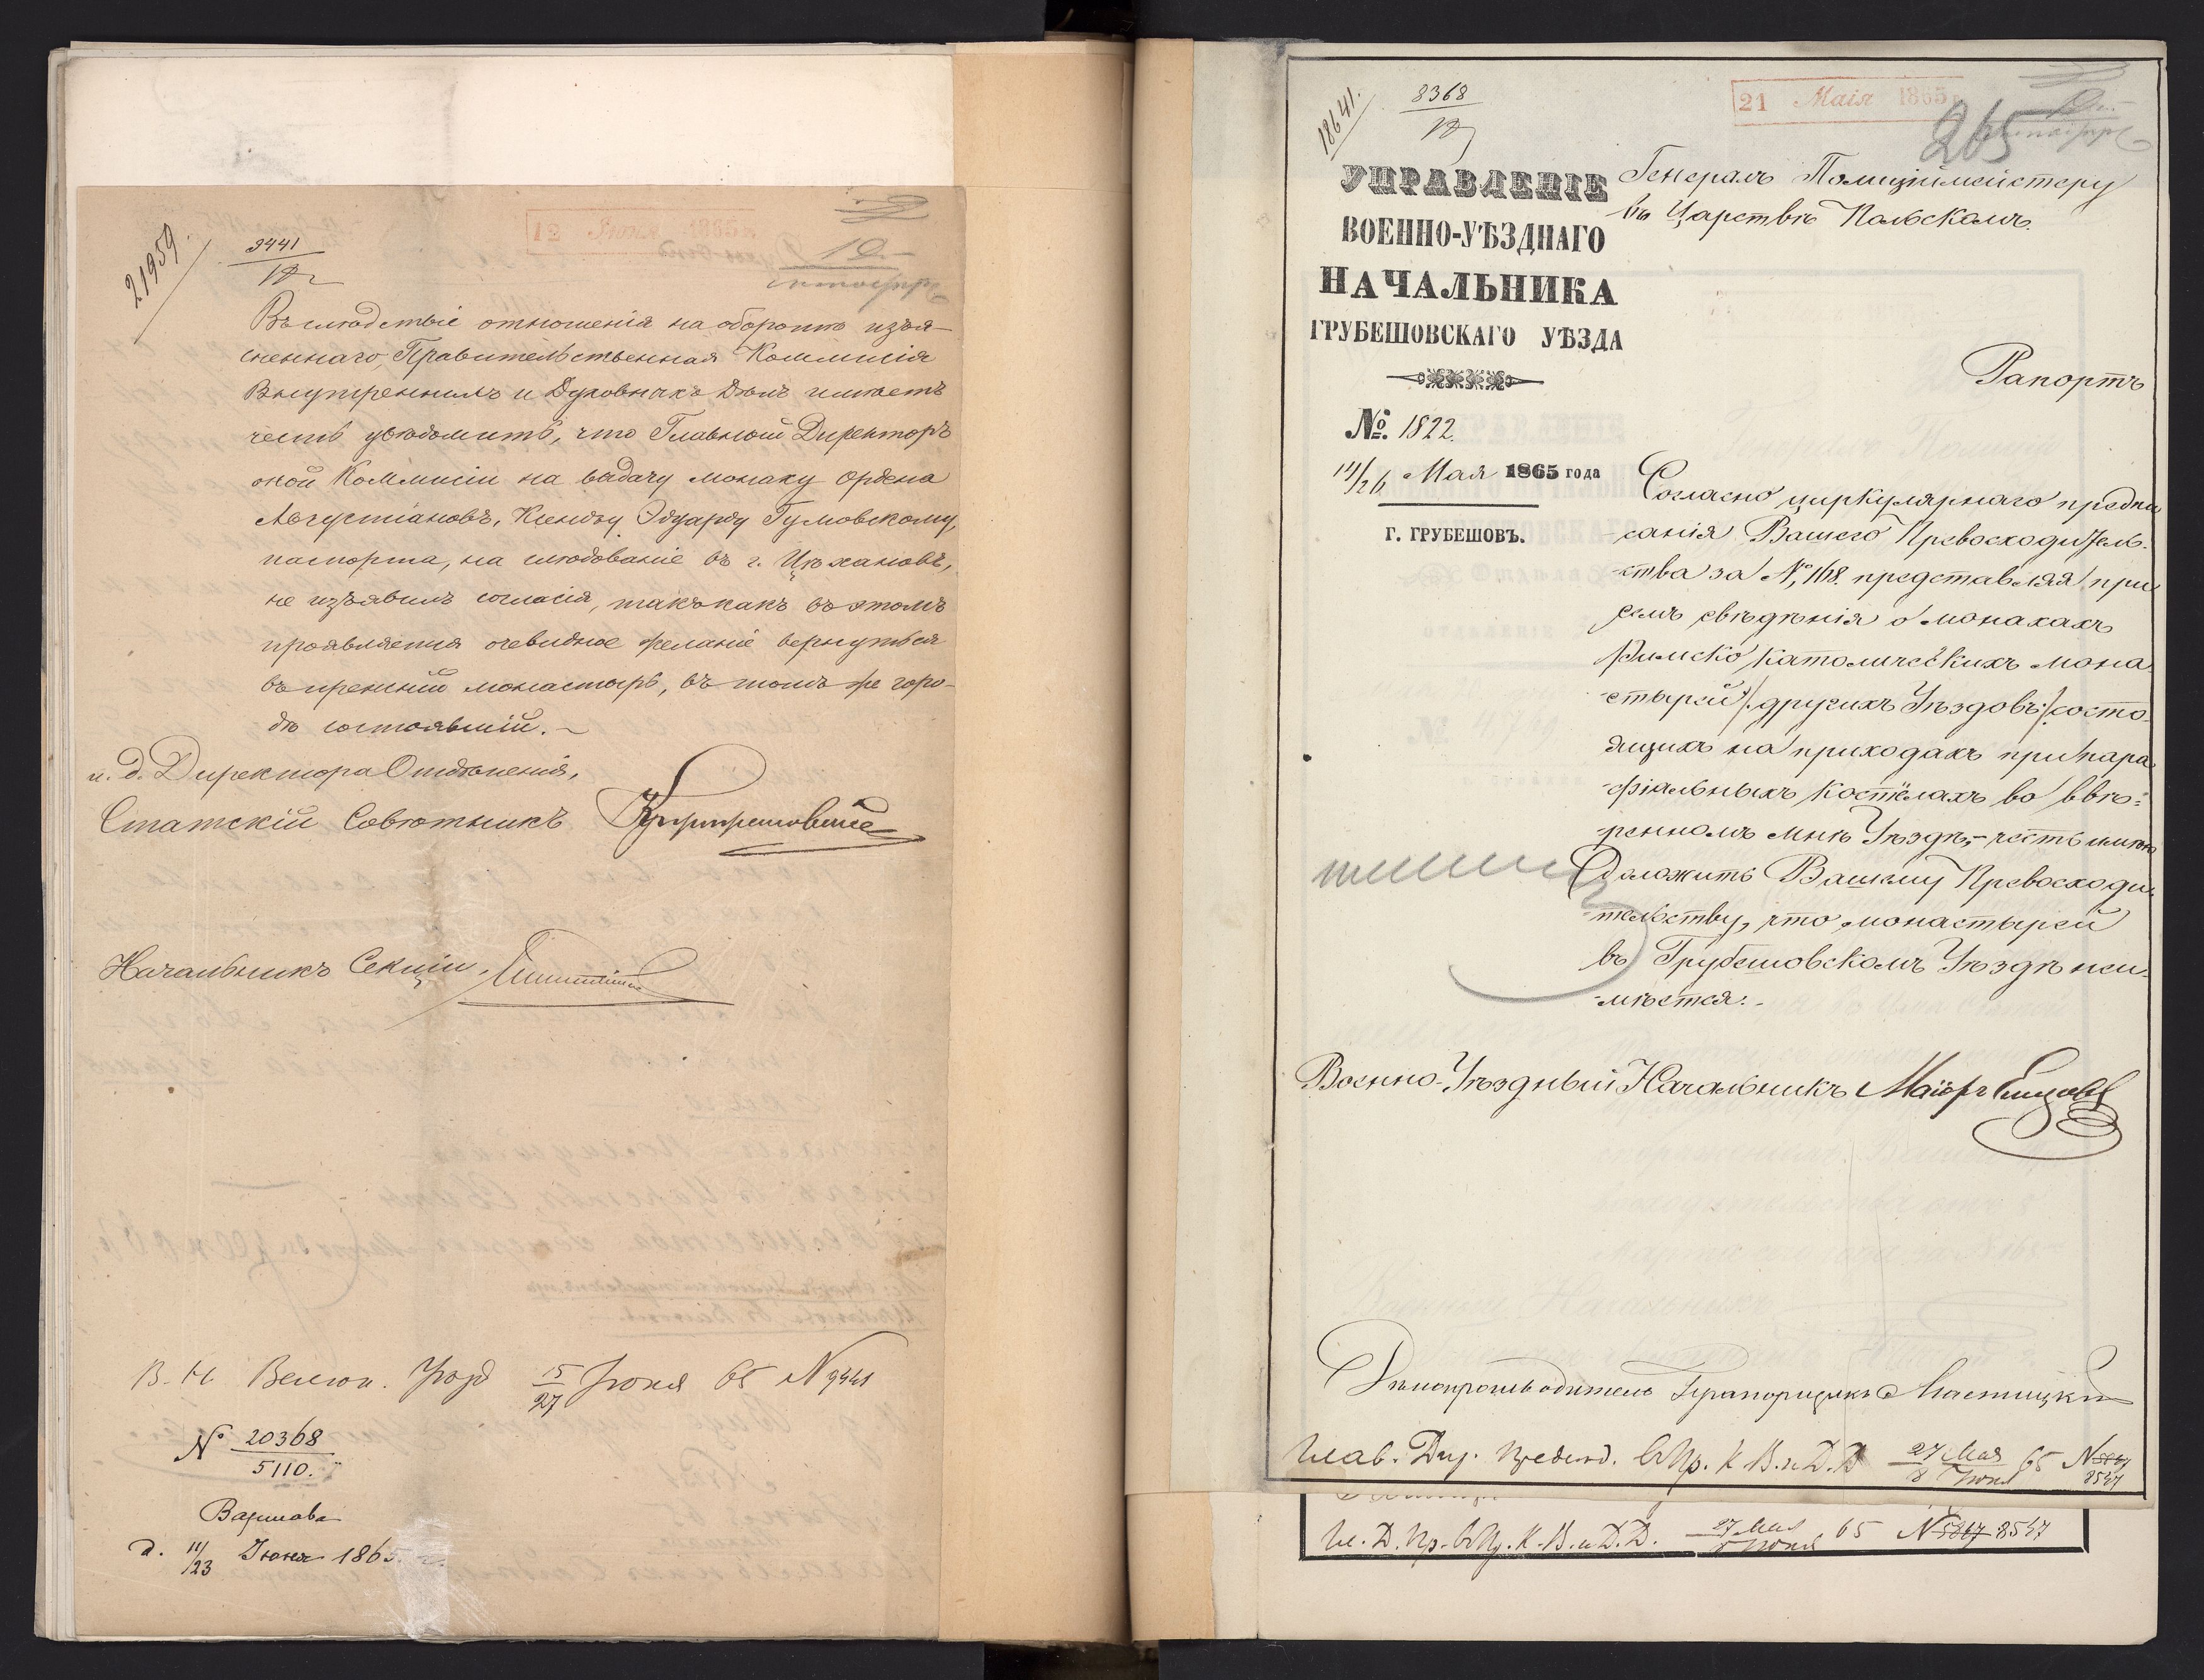 21959.
9441
12 Іюня 1865
Вслѣдствіе отношенія на оборотѣ изъя-
сненнаго, Правительственная Коммисія
Внутреннихъ и Духовныхъ Дѣлъ имѣетъ
честь увѣдомить, что Главный Директоръ
оной Коммисіи на выдачу монаху Ордена
Августіановъ, Ксендзу Эдуарду Гумовскому,
паспорта, на слѣдованіе въ г. Цѣхановъ,
не изъявилъ согласія, такъ какъ въ этомъ
проявляется очевидное желаніе вернуться
въ прежній монастырь, въ томъ же горо-
дѣ состоявшій.
и. д. Директора Отдѣленія,
Статскій Совѣтникъ
Начальникъ Секціи,
В. Н. Велюн. Уѣзд 15/27 Іюня 65 N 9441
№ 20368
5110.
Варшава
д. 11/23 Іюня 1865 г.
18641.
8368
21 Маія 1865
265
УПРАВЛЕНІЕ
ВОЕННО-УѢЗДНАГО
НАЧАЛЬНИКА
ГРУБЕШОВСКАГО УѢЗДА
№. 1822.
14/26 Мая 1865 года
Г. ГРУБЕШОВЪ.
Генералъ Полиціймейстеру
въ Царствѣ Польскомъ.
Рапортъ
Согласно циркулярнаго предпи
санія Вашего Превосходитель-
ства за №, 168. представляя при
семъ свѣдѣнія о монахахъ
Римско Католическихъ мона
стырей /: другихъ Уѣздовъ :/ состо-
ящихъ на приходахъ при пара
фіальныхъ костёлахъ во ввѣ-
ренномъ мнѣ Уѣздѣ, - честь имѣю
Доложить Вашему Превосходи
тельству, что монастырей
въ Грубешовскомъ Уѣздѣ неи-
мѣется.
Военно-Уѣздный Начальникъ Маіоръ
Дѣлопроизводитель Прапорщикъ
Глав. Дир. Предсѣд. въ Пр. К. В. и Д. Д. 27 Мая 8 Іюня 65 N 5867 8547
Гл. Д. Пр. въ Пр. К. В. и Д. Д. 27 Мая 8 Іюня 65 N 5867 8547